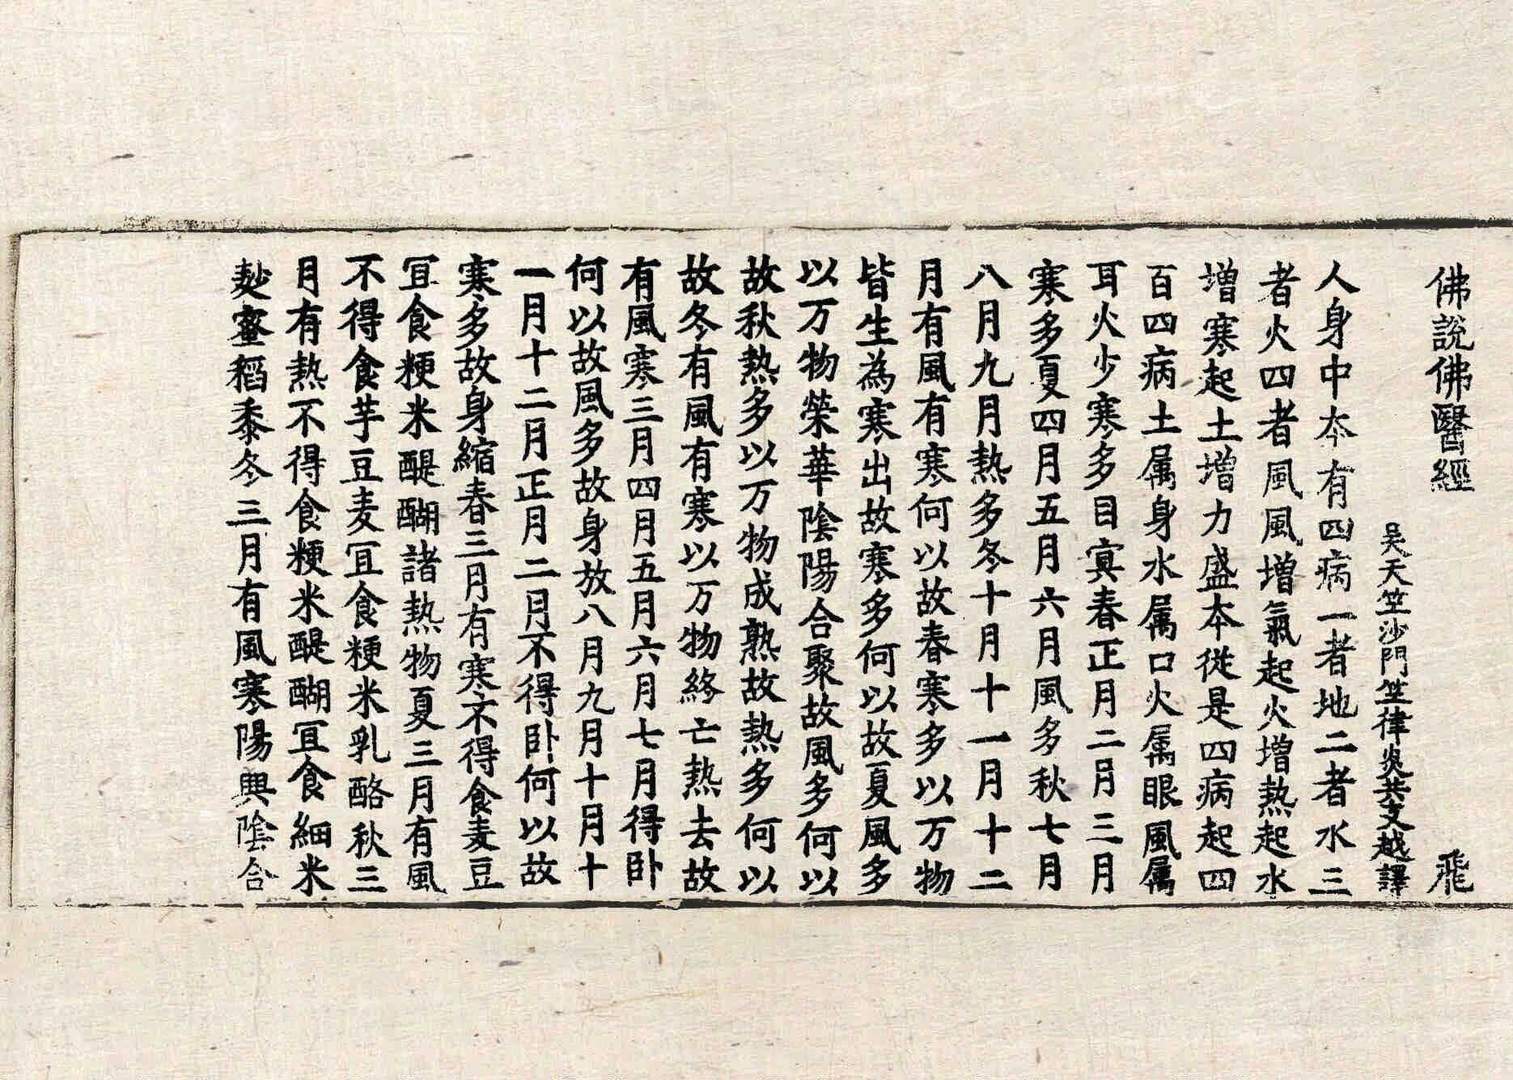 佛說佛醫經 飛
吴天竺沙門竺律炎共支越譯
人身中夲有四病一者地二者水三
者火四者風風增氣起火增熱起水
增寒起土增力盛夲從是四病起四
百四病土属身水属口火属眼風属
耳火少寒多目㝠春正月二月三月
寒多夏四月五月六月風多秋七月
八月九月熱多冬十月十一月十二
月有風有寒何以故春寒多以万物
皆生為寒出故寒多何以故夏風多
以万物榮華隂陽合聚故風多何以
故秋熱多以万物成熟故熱多何以
故冬有風有寒以万物終亡熱去故
有風寒三月四月五月六月七月得卧
何以故風多故身放八月九月十月十
一月十二月正月二月不得卧何以故
寒多故身縮春三月有寒不得食麦豆
冝食粳米醍醐諸熱物夏三月有風
不得食芋豆麦冝食粳米乳酪秋三
月有熱不得食粳米醍醐冝食細米
麨蜜稻黍冬三月有風寒陽興隂合